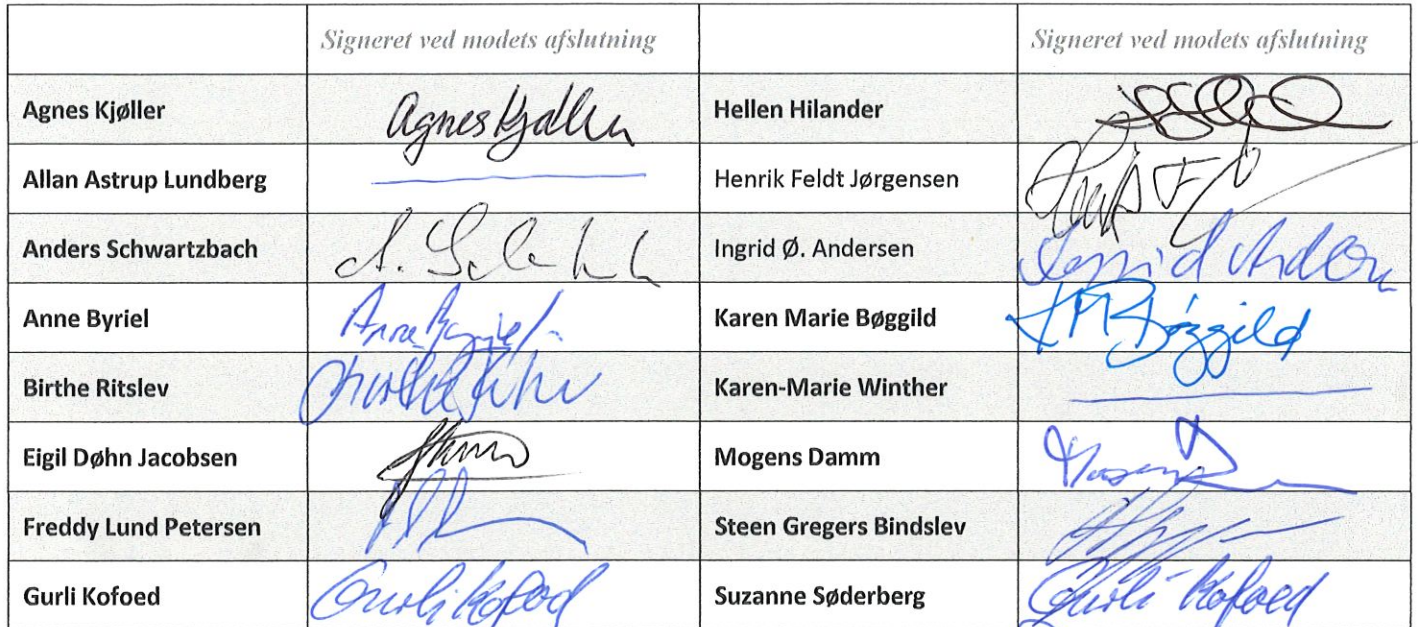 Signeret ved mødets afslutning Signeret ved mødets afslutning
Agnes Kjøller Agnes Kjøller Hellen Hilander
Allan Astrup Lundberg Henrik Feldt Jørgensen
Anders Schwartzbach A. Ingrid Ø. Andersen Ingrid Andersen
Anne Byriel Anne Byriel Karen Marie Bøggild KM Bøggild
Birthe Ritslev Karen-Marie Winther
Eigil Døhn Jacobsen Mogens Damm Mogens
Freddy Lund Petersen Steen Gregers Bindslev
Gurli Kofoed Gurli Kofoed Suzanne Søderberg Gurli Kofoed